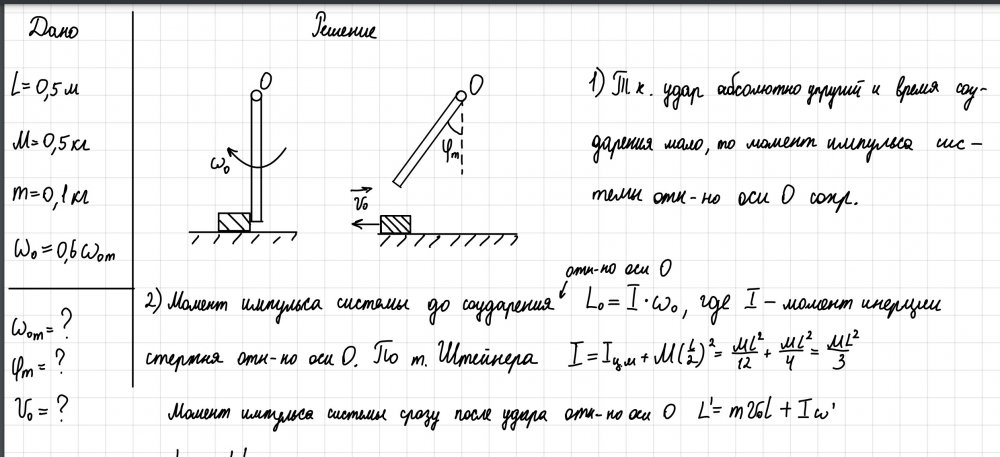 Дано
Решение
L = 0,5 м
M = 0,5 кг
m = 0,1 кг
ω₀ = 0,6 ω₀m
ω₀m = ?
φm = ?
V₀ = ?
O
ω₀
O
φm
V₀
1) Т.к. удар абсолютно упругий и время соу-
дарения мало, то момент импульса сис-
темы отн-но оси O сохр.
отн-но оси O
2) Момент импульса системы до соударения L₀ = I · ω₀, где I – момент инерции
стержня отн-но оси O. По т. Штейнера I = Iц.м + M(L/2)² = ML²/12 + ML²/4 = ML²/3
Момент импульса системы сразу после удара отн-но оси O L' = mV₀l + Iω'